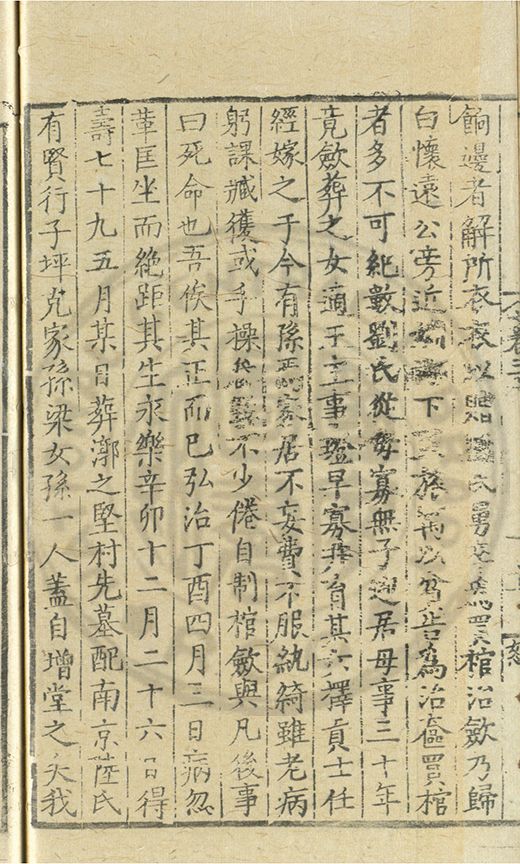 餉邊者解所衣衣以贈氏舅卒為買棺治斂乃歸
白懷遠公旁近下族以貧告為治奩買棺
者多不可紀數劉氏從母寡無子迎居母事三十年
竟斂葬之女適于主事瑬早寡其六擇貢士任
經嫁之于今有孫家居不妄費不服紈綺雖老病
躬課臧獲或手操不少倦自制棺斂與凡後事
曰死命也吾俟其正而已弘治丁酉四月三日病忽
革匡坐而絶距其生永樂辛卯十二月二十六日得
壽七十九五月某日葬漷之堅村先墓配南京陸氏
有賢行子坪克家孫梁女孫一人蓋自增堂之失我